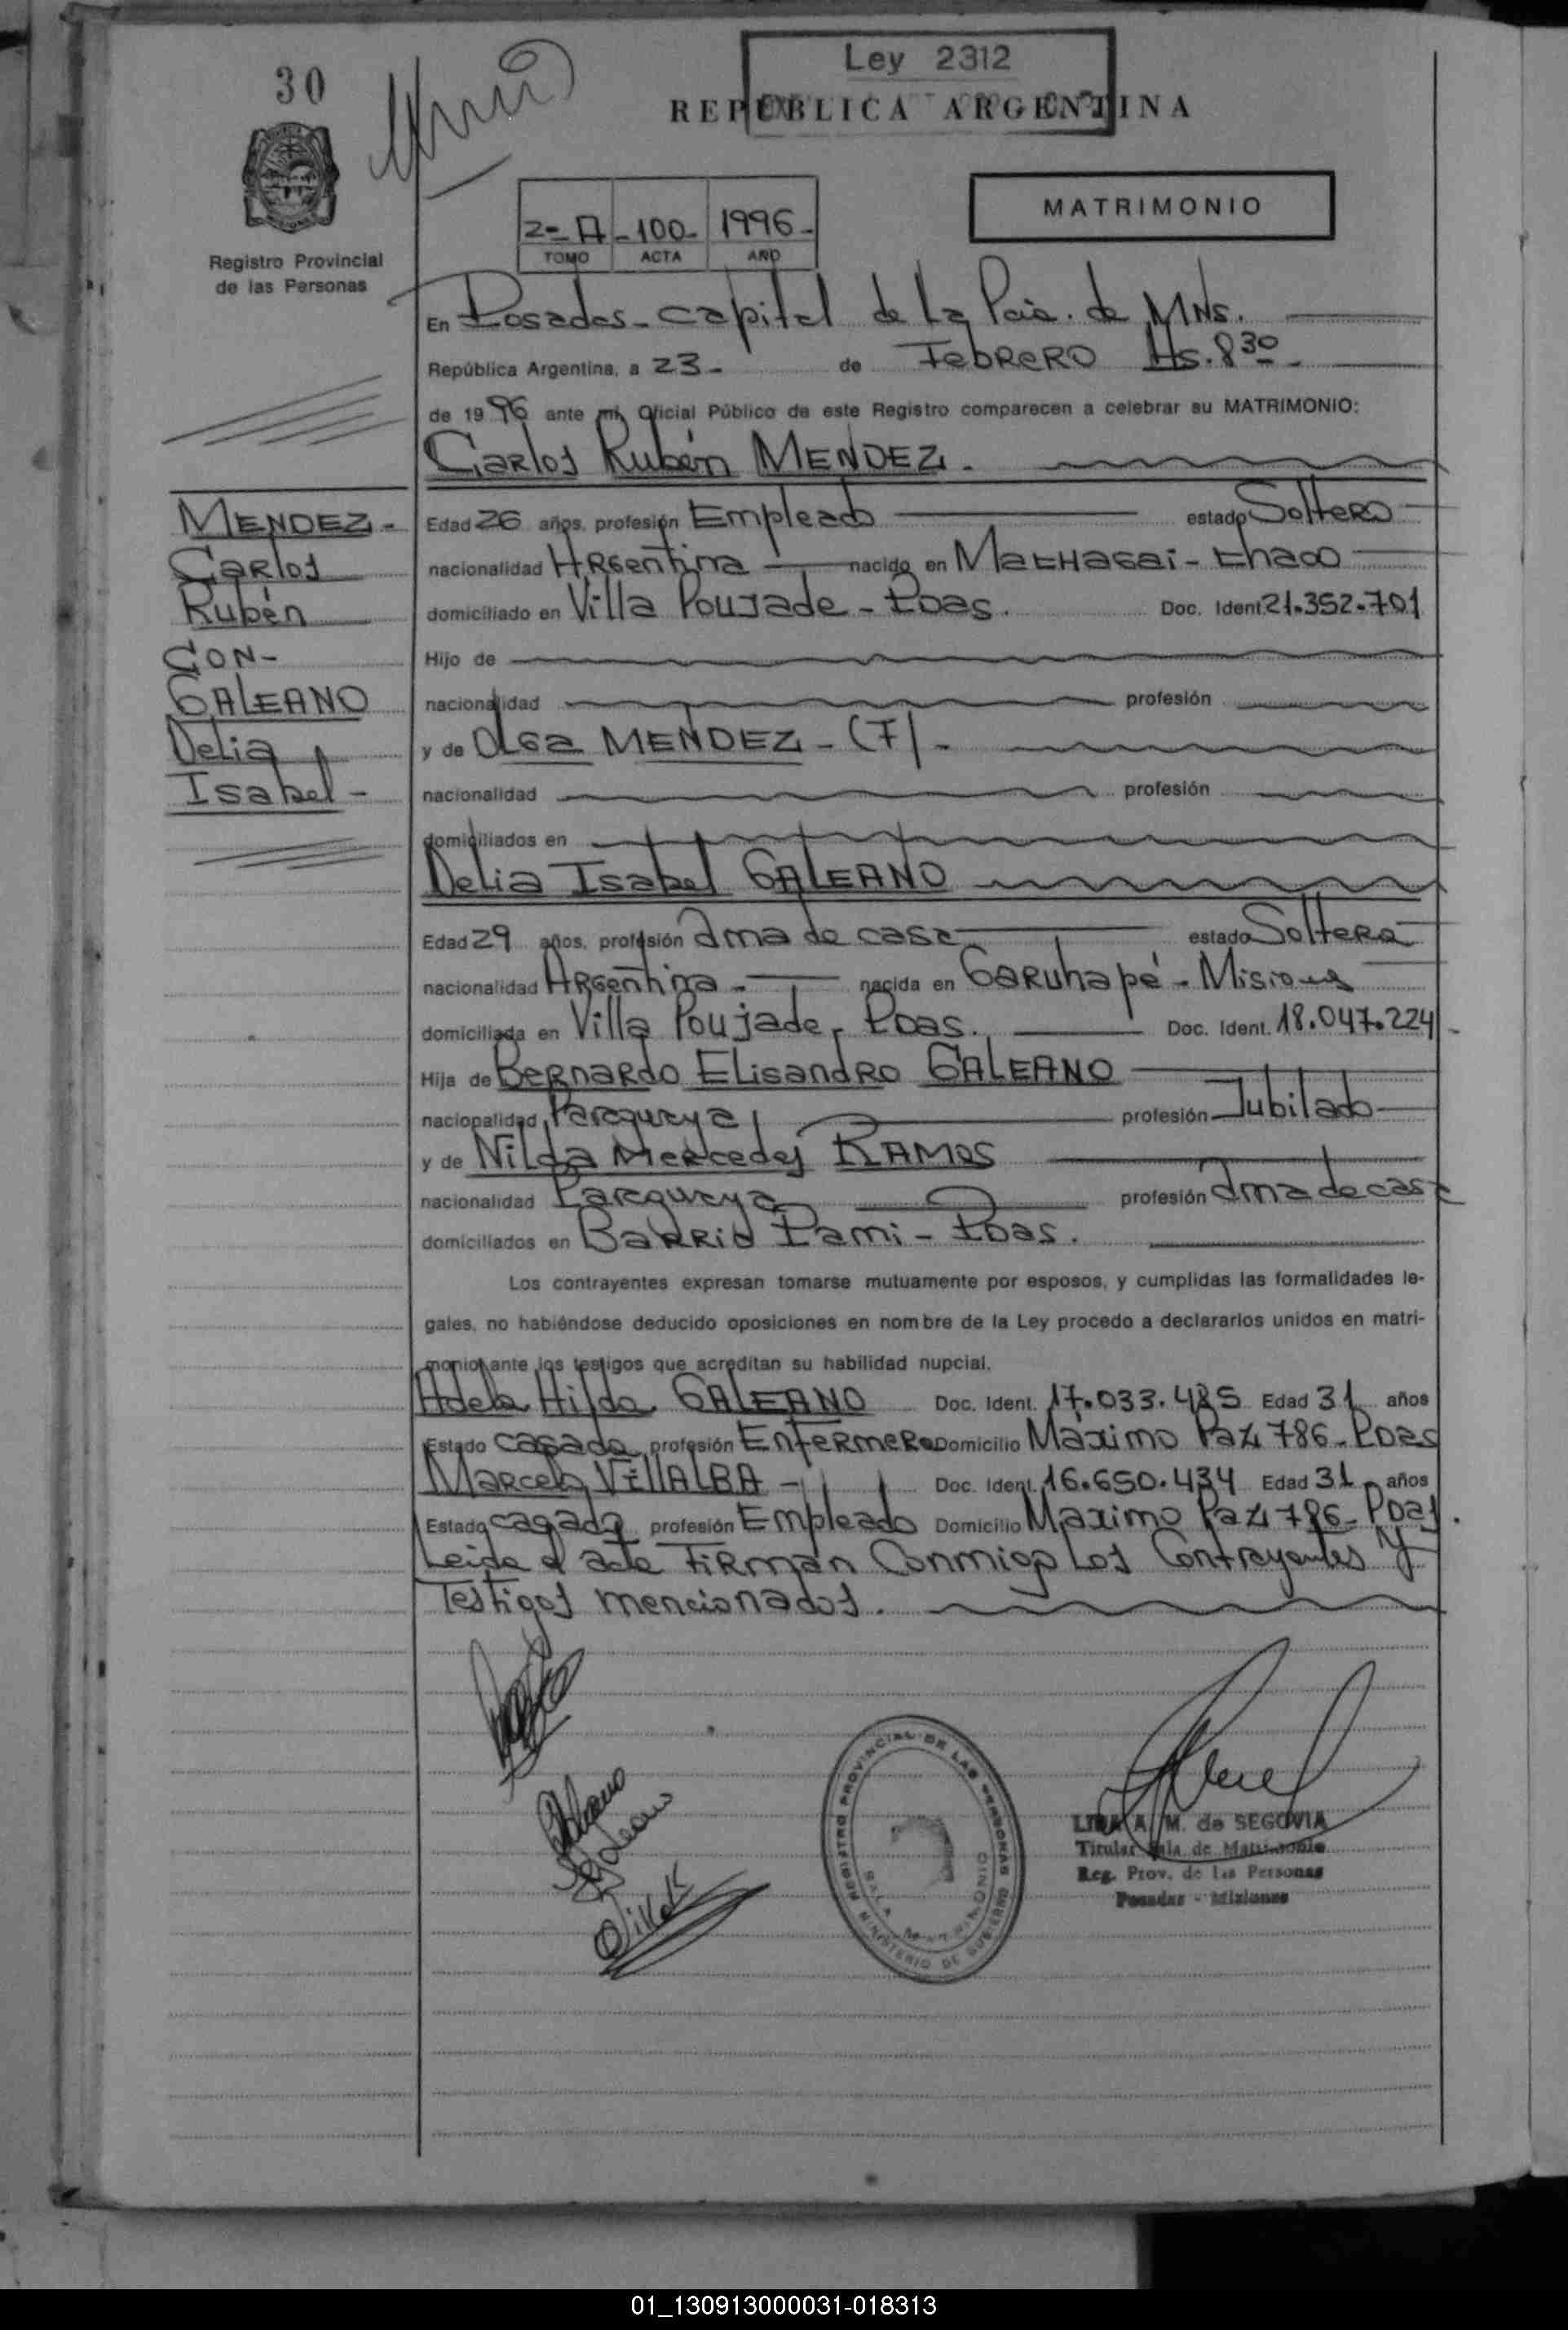 30
Ley 2312
REPUBLICA ARGENTINA
MATRIMONIO
2=A -100- 1996-
TOMO ACTA AÑO
Registro Provincial
de las Personas
En Posadas - Capital de la Pcia. de MNs.
República Argentina, a 23- de Febrero Hs. 8 30 -
de 1996 ante mí, Oficial Público de este Registro comparecen a celebrar su MATRIMONIO:
Carlos Rubén MENDEZ.
MENDEZ-
Carlos
Rubén
CON-
GALEANO
Delia
Isabel-
Edad 26 años, profesión Empleado estado Soltero
nacionalidad Argentina nacido en Machagai - Chaco
domiciliado en Villa Poujade - Pdas. Doc. Ident. 21.352.701
Hijo de
nacionalidad profesión
y de Olga MENDEZ - (F) -
nacionalidad profesión
domiciliados en
Delia Isabel GALEANO
Edad 29 años, profesión Ama de casa estado Soltera
nacionalidad Argentina - nacida en Garuhapé - Misiones
domiciliada en Villa Poujade - Pdas. Doc. Ident. 18.047.224 -
Hija de Bernardo Elisandro GALEANO
nacionalidad Paraguaya profesión Jubilado
y de Nilda Mercedes RAMOS
nacionalidad Paraguaya profesión Ama de casa
domiciliados en Barrio Pami - Pdas.
Los contrayentes expresan tomarse mutuamente por esposos, y cumplidas las formalidades le-
gales, no habiéndose deducido oposiciones en nombre de la Ley procedo a declararlos unidos en matri-
monio, ante los testigos que acreditan su habilidad nupcial.
Adela Hilda GALEANO Doc. Ident. 17.033.485 Edad 31 años
Estado casada profesión Enfermera Domicilio Máximo Paz 786 - Pdas
Marcelo VillALBA - Doc. Ident. 16.650.434 Edad 31 años
Estado casado profesión Empleado Domicilio Maximo Paz 786 - Pdas.
Leida el acta Firman Conmigo Los Contrayentes y
Testigos mencionados.
REGISTRO PROVINCIAL DE LAS PERSONAS
MINISTERIO DE GOBIERNO
SALA MATRIMONIO
A. M. de SEGOVIA
Titular Sala de Matrimonio
Reg. Prov. de las Personas
Posadas - Misiones
01_130913000031-018313